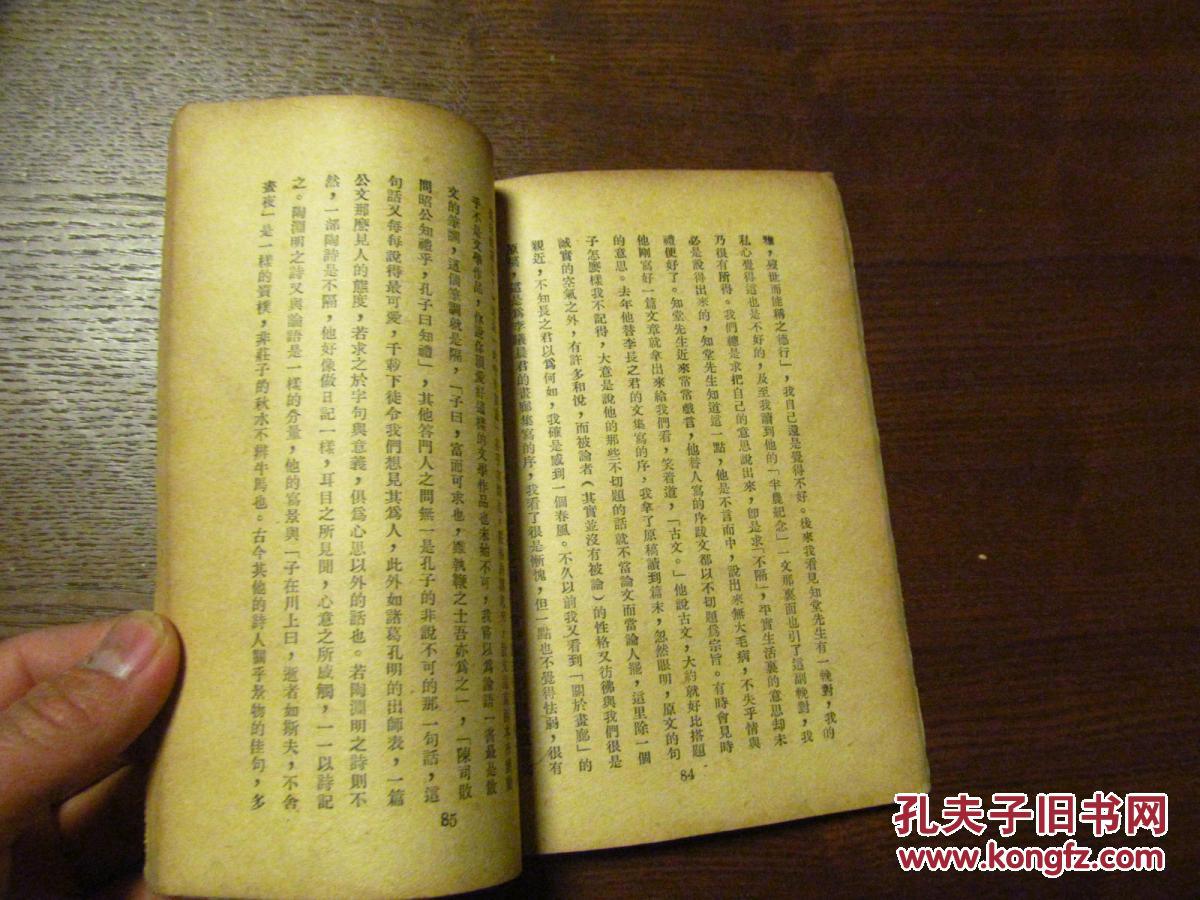 雅，歿世而能稱之德行」，我自己還是覺得不好。後來我看見知堂先生有一輓對，我的
私心覺得這也是不好的，及至我讀到他的「半農紀念」一文那裏面也引了這副輓對，我
乃很有所得。我們總是求把自己的意思說出來，卽是求「不隔」，平實生活裏的意思却未
必是說得出來的，知堂先生知道這一點，他是不言而中，說出來無大毛病，不失乎情與
禮便好了。知堂先生近來常常戲言，他替人寫的序跋文都以不切題爲宗旨。有時會見時
他剛寫好一篇文章就拿出來給我們看，笑着道，「古文。」他說古文，大約就好比搭題
的意思。去年他替李長之君的文集寫的序，我拿了原稿讀到篇末，忽然眼明，原文的句
子怎麼樣我不記得，大意是說他的那些不切題的話就不當論文而當論人罷，這里除一個
誠實的空氣之外，有許多和悅，而被論者（其實並沒有被論）的性格又彷彿與我們很是
親近，不知長之君以爲何如，我確是感到一個春風。不久以前我又看到「關於畫廊」的
原稿，這是爲李曦晨君的畫廊集寫的序，我看了很是慚愧，但一點也不覺得怯弱，很有
84
乎不是文學作品，
文的筆調，這個筆調就是隔，「子曰，富而可求也，雖執鞭之士吾亦爲之」，「陳司敗
問昭公知禮乎，孔子曰知禮」，其他答門人之問無一是孔子的非說不可的那一句話，這
句話又每每說得最可愛，千載下徒令我們想見其爲人，此外如諸葛孔明的出師表，一篇
公文那麼見人的態度，若求之於字句與意義，俱爲心思以外的話也。若陶淵明之詩則不
然，一部陶詩是不隔，他好像做日記一樣，耳目之所見聞，心意之所感觸，一一以詩記
之。陶淵明之詩又與論語是一樣的分量，他的寫景與「子在川上曰，逝者如斯夫，不舍
晝夜」是一樣的質樸，非莊子的秋水不辨牛馬也。古今其他的詩人關乎景物的佳句，多
85
孔夫子旧书网
www.kongfz.com